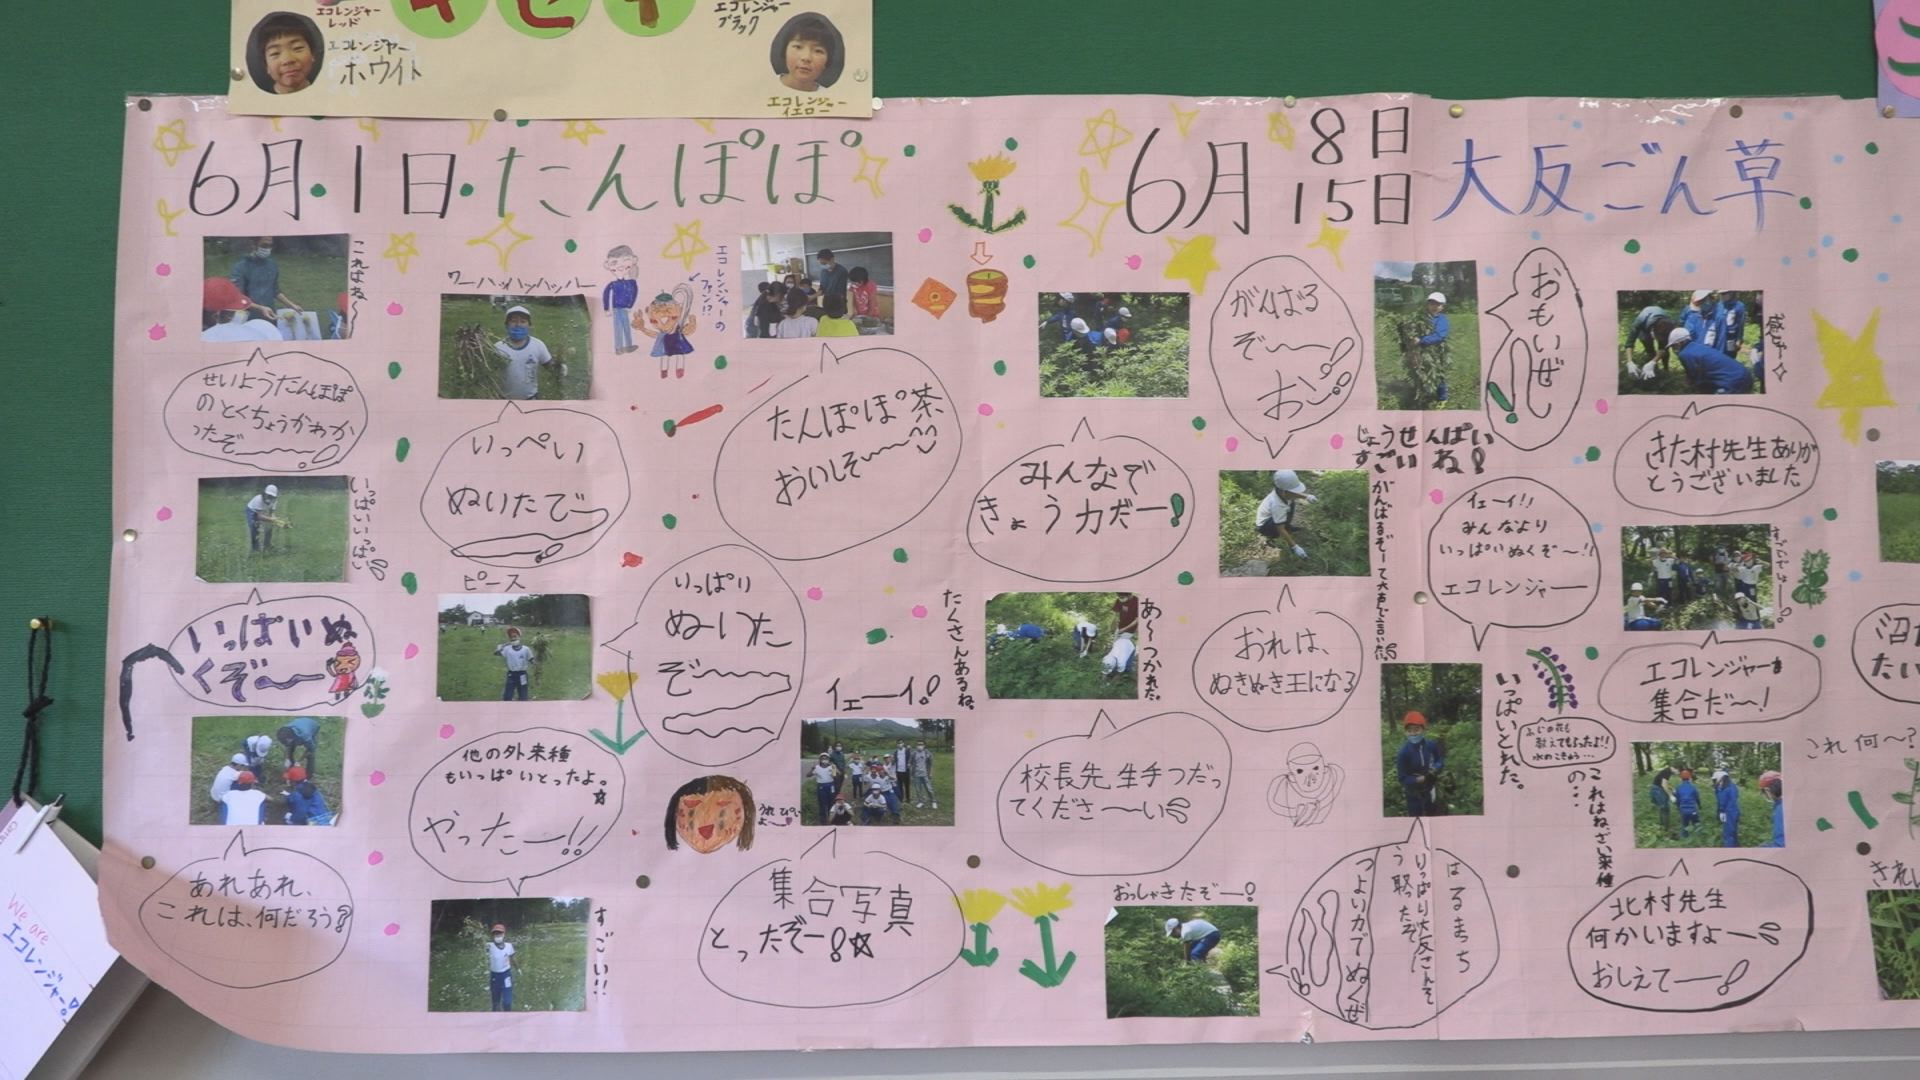 エコレンジャー
レッド
エコレンジャー
ホワイト
エコレンジャー
ブラック
エコレンジャー
イエロー
6月1日 たんぽぽ
6月 8日
15日
大反ごん草
これはね〜
ワーハッハッハッハー
エコレンジャーの
ファン!?
せいようたんぽぽ
のとくちょうがわか
ったぞ〜!
いっぺい
ぬいたでー
たんぽぽ茶
おいしそ〜
いっぱいいっぱい
ピース
いっぱいぬ
くぞ〜
いっぱい
ぬーいた
ぞ〜
他の外来種
もいっぱいとったよ。
やったー!!
イェーイ!
たくさんあるね。
あれあれ、
これは、何だろう?
すごい!!
集合写真
とったぞー!☆
がんばる
ぞ〜
おー!
おもいぜ!
感しゃ
みんなで
きょう力だー!
じょうせんぱい
すごいね!
がんばるぞーて大声で言いた。
イェーイ!!
みんなより
いっぱいぬくぞ〜!!
エコレンジャー
きた村先生ありが
とうございました
あ〜つかれた。
おれは、
ぬきぬき王になる
エコレンジャー
集合だ〜!
いっぱいとれた。
校長先生手つだっ
てくださ〜い
これ何〜?
これはねざい来種
の…
おっしゃきたぞー!
つよい力でぬくぜ
北村先生
何かいますよー
おしえてー!
We are
エコレンジャー!